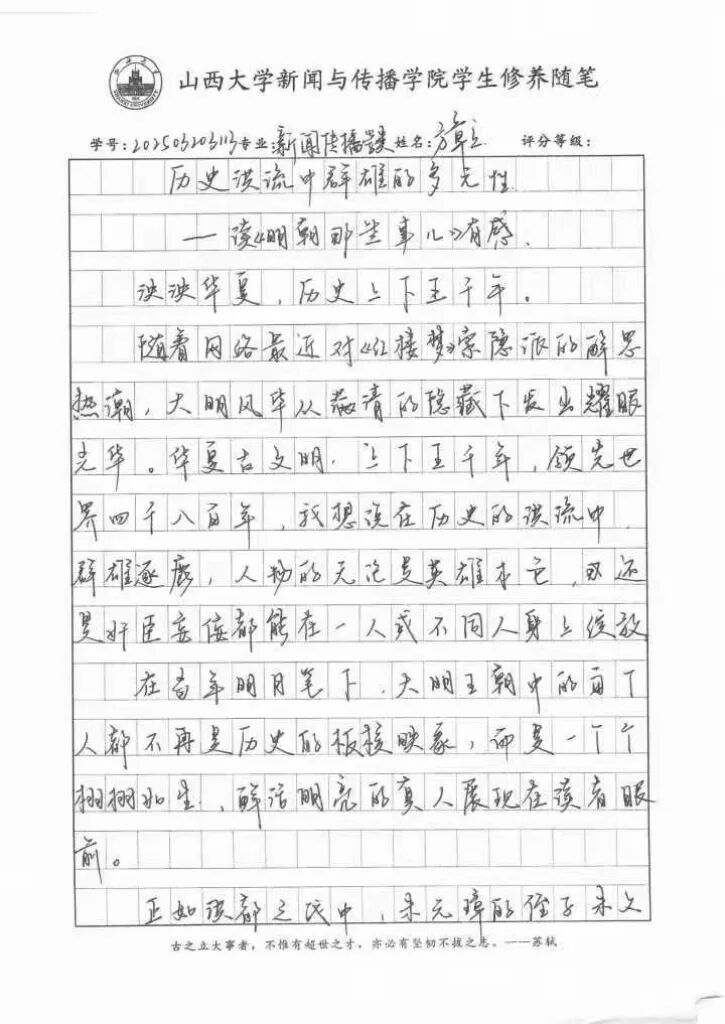 山西大学新闻与传播学院学生修养随笔
学号：202503203113 专业：新闻传播学类 姓名：章 评分等级：
历史洪流中群雄的多元性
——读《明朝那些事儿》有感.
泱泱华夏，历史上下五千年。
随着网络最近对《红楼梦》索隐派的解思
热潮，大明风华从清的隐藏下发出耀眼
光华。华夏古文明.上下五千年，领先世
界四千八百年，我想说在历史的洪流中.
群雄逐鹿，人物的无论是英雄本色，还
是奸臣妄佞都能在一人或不同人身上绽放
在当年明月笔下.大明王朝中的每个
人都不再是历史的板模映象，而是一个个
栩栩如生.，鲜活明亮的真人展现在读者眼
前。
正如洪都之战中，朱元璋的侄子朱文
古之立大事者，不惟有超世之才，亦必有坚韧不拔之志。——苏轼